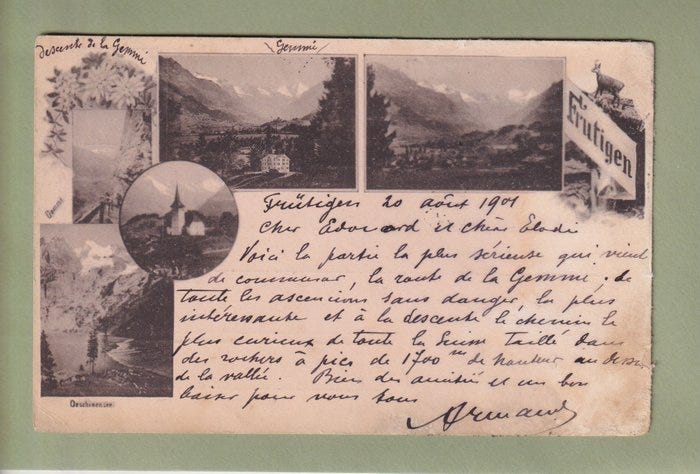 descente de la Gemmi
Gemmi
Frutigen
Gemmi
Oeschinensee
Frütigen 20 août 1901
Cher Edouard et chère Elodie
Voici la partie la plus sérieuse qui vient
de commencer, la route de la Gemmi. de
toute les ascencions sans danger, la plus
intéressante et à la descente le chemin le
plus curieux de toute la Suisse taillé dans
des rochers à pics de 1700 m de hauteur au dessus
de la vallée. Bien des amitiés et un bon
baiser pour vous tous
Armand